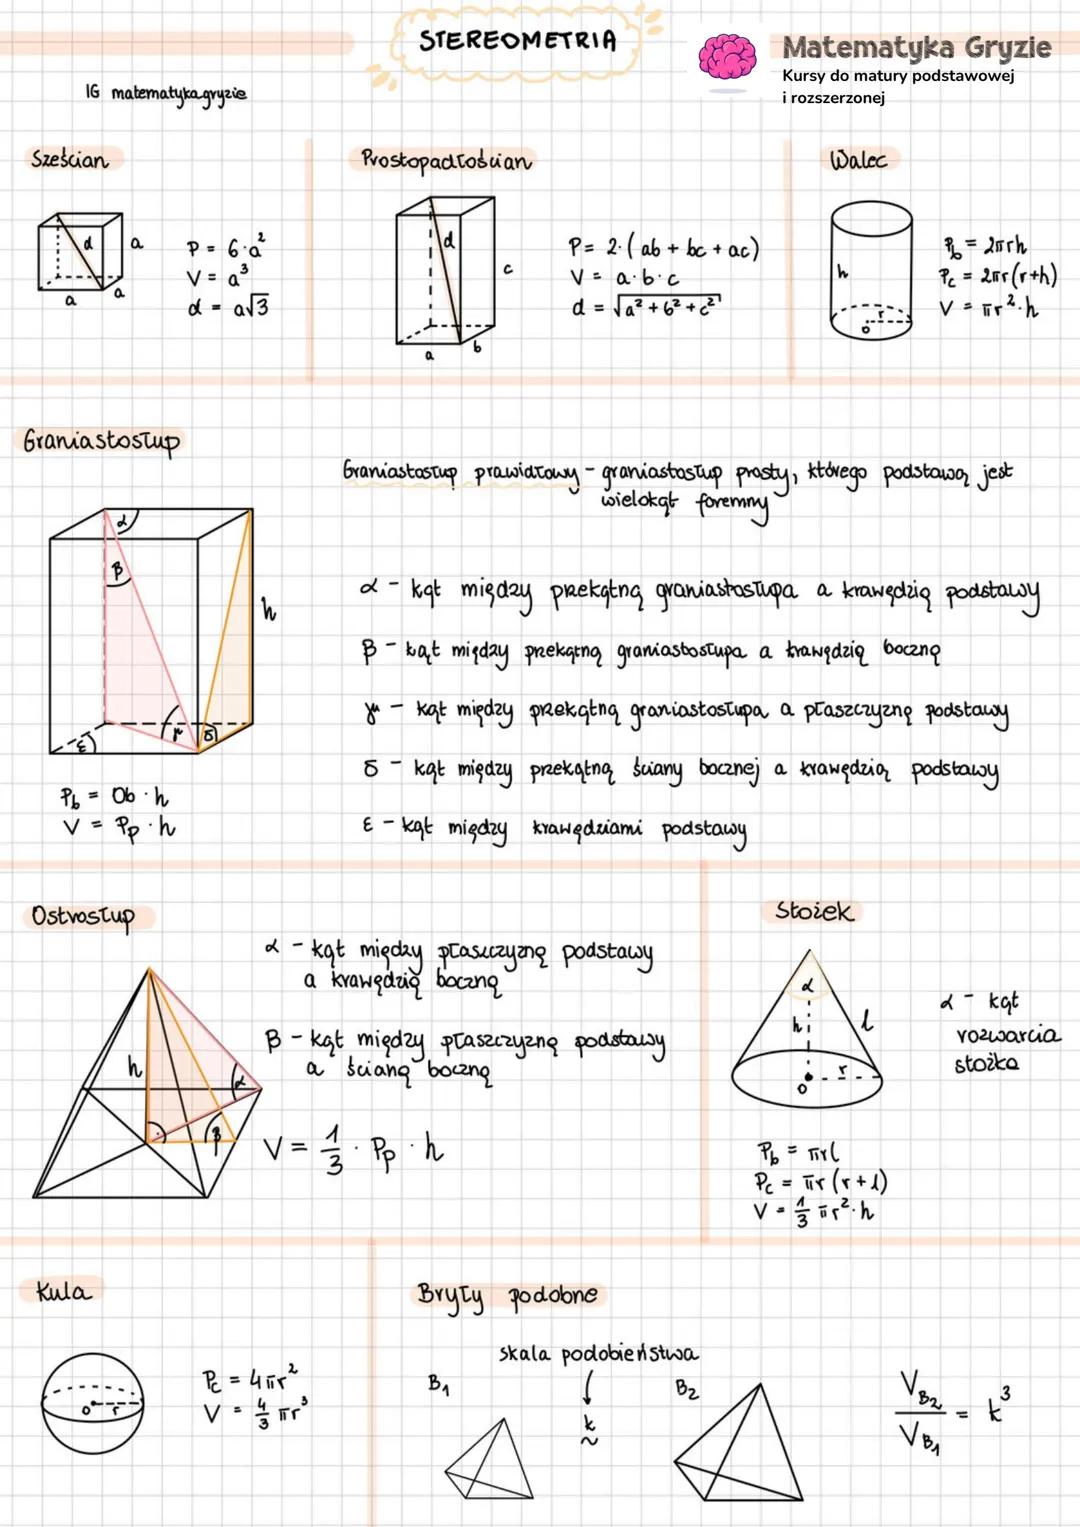 STEREOMETRIA
Matematyka Gryzie
Kursy do matury podstawowej
i rozszerzonej
IG matematyka.gryzie
Sześcian
d
a
a
a
P = 6·a²
V = a³
d = a√3
Prostopadłościan
d
c
a
b
P = 2·(ab + bc + ac)
V = a·b·c
d = √a² + b² + c²
Walec
h
r
o
P_b = 2πrh
P_c = 2πr(r+h)
V = πr²·h
Graniastosłup
α
β
h
γ
δ
ε
P_b = Ob · h
V = P_p · h
Graniastosłup prawidłowy - graniastosłup prosty, którego podstawą jest
wielokąt foremny
α - kąt między przekątną graniastosłupa a krawędzią podstawy
β - kąt między przekątną graniastosłupa a krawędzią boczną
γ - kąt między przekątną graniastosłupa a płaszczyzną podstawy
δ - kąt między przekątną ściany bocznej a krawędzią podstawy
ε - kąt między krawędziami podstawy
Ostrosłup
h
α
β
α - kąt między płaszczyzną podstawy
a krawędzią boczną
β - kąt między płaszczyzną podstawy
a ścianą boczną
V = 1/3 · P_p · h
Stożek
α
h
l
r
o
α - kąt
rozwarcia
stożka
P_b = πrl
P_c = πr(r+l)
V = 1/3 πr²·h
Kula
o
r
P_c = 4πr²
V = 4/3 πr³
Bryły podobne
skala podobieństwa
B₁
k
~
B₂
V_B₂ / V_B₁ = k³